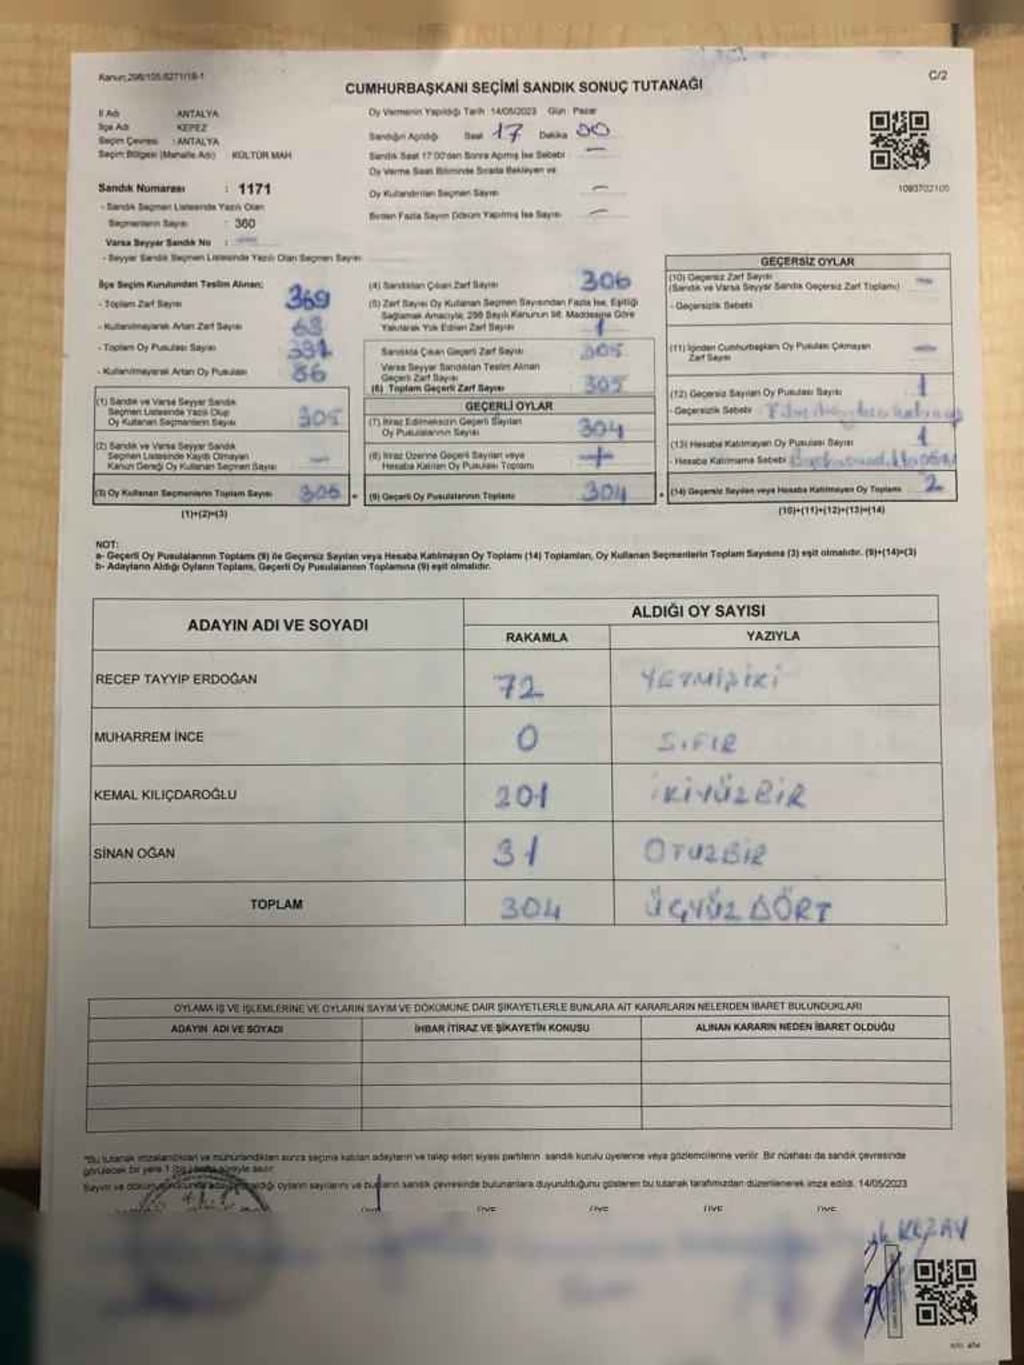 Kanun:298/105,6271/19-1
C/2
CUMHURBAŞKANI SEÇİMİ SANDIK SONUÇ TUTANAĞI
İl Adı ANTALYA
İlçe Adı KEPEZ
Seçim Çevresi : ANTALYA
Seçim Bölgesi (Mahalle Adı) : KÜLTÜR MAH
Sandık Numarası : 1171
- Sandık Seçmen Listesinde Yazılı Olan
Seçmenlerin Sayısı : 360
Varsa Seyyar Sandık No : —
- Seyyar Sandık Seçmen Listesinde Yazılı Olan Seçmen Sayısı
Oy Vermenin Yapıldığı Tarih :14/05/2023 Gün : Pazar
Sandığın Açıldığı Saat 17 Dakika 00
Sandık Saat 17:00'den Sonra Açılmış İse Sebebi —
Oy Verme Saati Bitiminde Sırada Bekleyen ve
Oy Kullandırılan Seçmen Sayısı —
Birden Fazla Sayım Döküm Yapılmış İse Sayısı —
1093702105
İlçe Seçim Kurulundan Teslim Alınan;
- Toplam Zarf Sayısı 369
- Kullanılmayarak Artan Zarf Sayısı 63
- Toplam Oy Pusulası Sayısı 391
- Kullanılmayarak Artan Oy Pusulası 86
(1) Sandık ve Varsa Seyyar Sandık
Seçmen Listesinde Yazılı Olup
Oy Kullanan Seçmenlerin Sayısı 305
(2) Sandık ve Varsa Seyyar Sandık
Seçmen Listesinde Kayıtlı Olmayan
Kanun Gereği Oy Kullanan Seçmen Sayısı —
(3) Oy Kullanan Seçmenlerin Toplam Sayısı 306
(1)+(2)=(3)
(4) Sandıktan Çıkan Zarf Sayısı 306
(5) Zarf Sayısı Oy Kullanan Seçmen Sayısından Fazla İse, Eşitliği
Sağlamak Amacıyla, 298 Sayılı Kanunun 98. Maddesine Göre
Yakılarak Yok Edilen Zarf Sayısı 1
Sandıkta Çıkan Geçerli Zarf Sayısı 305
Varsa Seyyar Sandıktan Teslim Alınan
Geçerli Zarf Sayısı
(6) Toplam Geçerli Zarf Sayısı 305
GEÇERLİ OYLAR
(7) İtiraz Edilmeksizin Geçerli Sayılan
Oy Pusulalarının Sayısı 304
(8) İtiraz Üzerine Geçerli Sayılan veya
Hesaba Katılan Oy Pusulası Toplamı
(9) Geçerli Oy Pusulalarının Toplamı 304
GEÇERSİZ OYLAR
(10) Geçersiz Zarf Sayısı
(Sandık ve Varsa Seyyar Sandık Geçersiz Zarf Toplamı) —
- Geçersizlik Sebebi
(11) İçinden Cumhurbaşkanı Oy Pusulası Çıkmayan
Zarf Sayısı —
(12) Geçersiz Sayılan Oy Pusulası Sayısı 1
- Geçersizlik Sebebi
(13) Hesaba Katılmayan Oy Pusulası Sayısı 1
- Hesaba Katılmama Sebebi
(14) Geçersiz Sayılan veya Hesaba Katılmayan Oy Toplamı 2
(10)+(11)+(12)+(13)=(14)
NOT:
a- Geçerli Oy Pusulalarının Toplamı (9) ile Geçersiz Sayılan veya Hesaba Katılmayan Oy Toplamı (14) Toplamları, Oy Kullanan Seçmenlerin Toplam Sayısına (3) eşit olmalıdır. (9)+(14)=(3)
b- Adayların Aldığı Oyların Toplamı, Geçerli Oy Pusulalarının Toplamına (9) eşit olmalıdır.
ADAYIN ADI VE SOYADI
ALDIĞI OY SAYISI
RAKAMLA YAZIYLA
RECEP TAYYİP ERDOĞAN 72 YETMİŞİKİ
MUHARREM İNCE 0 SIFIR
KEMAL KILIÇDAROĞLU 201 İKİYÜZBİR
SİNAN OĞAN 31 OTUZBİR
TOPLAM 304 ÜÇYÜZ DÖRT
OYLAMA İŞ VE İŞLEMLERİNE VE OYLARIN SAYIM VE DÖKÜMÜNE DAİR ŞİKAYETLERLE BUNLARA AİT KARARLARIN NELERDEN İBARET BULUNDUKLARI
ADAYIN ADI VE SOYADI İHBAR İTİRAZ VE ŞİKAYETİN KONUSU ALINAN KARARIN NEDEN İBARET OLDUĞU
*Bu tutanak imzalandıktan ve mühürlendikten sonra seçime katılan adayların ve talep eden siyasi partilerin sandık kurulu üyelerine veya gözlemcilerine verilir. Bir nüshası da sandık çevresinde
görülecek bir yere 1 (bir) hafta süreyle asılır.
oyların sayılarını ve bunların sandık çevresinde bulunanlara duyurulduğunu gösteren bu tutanak tarafımızdan düzenlenerek imza edildi. 14/05/2023
ÜYE ÜYE ÜYE ÜYE ÜYE